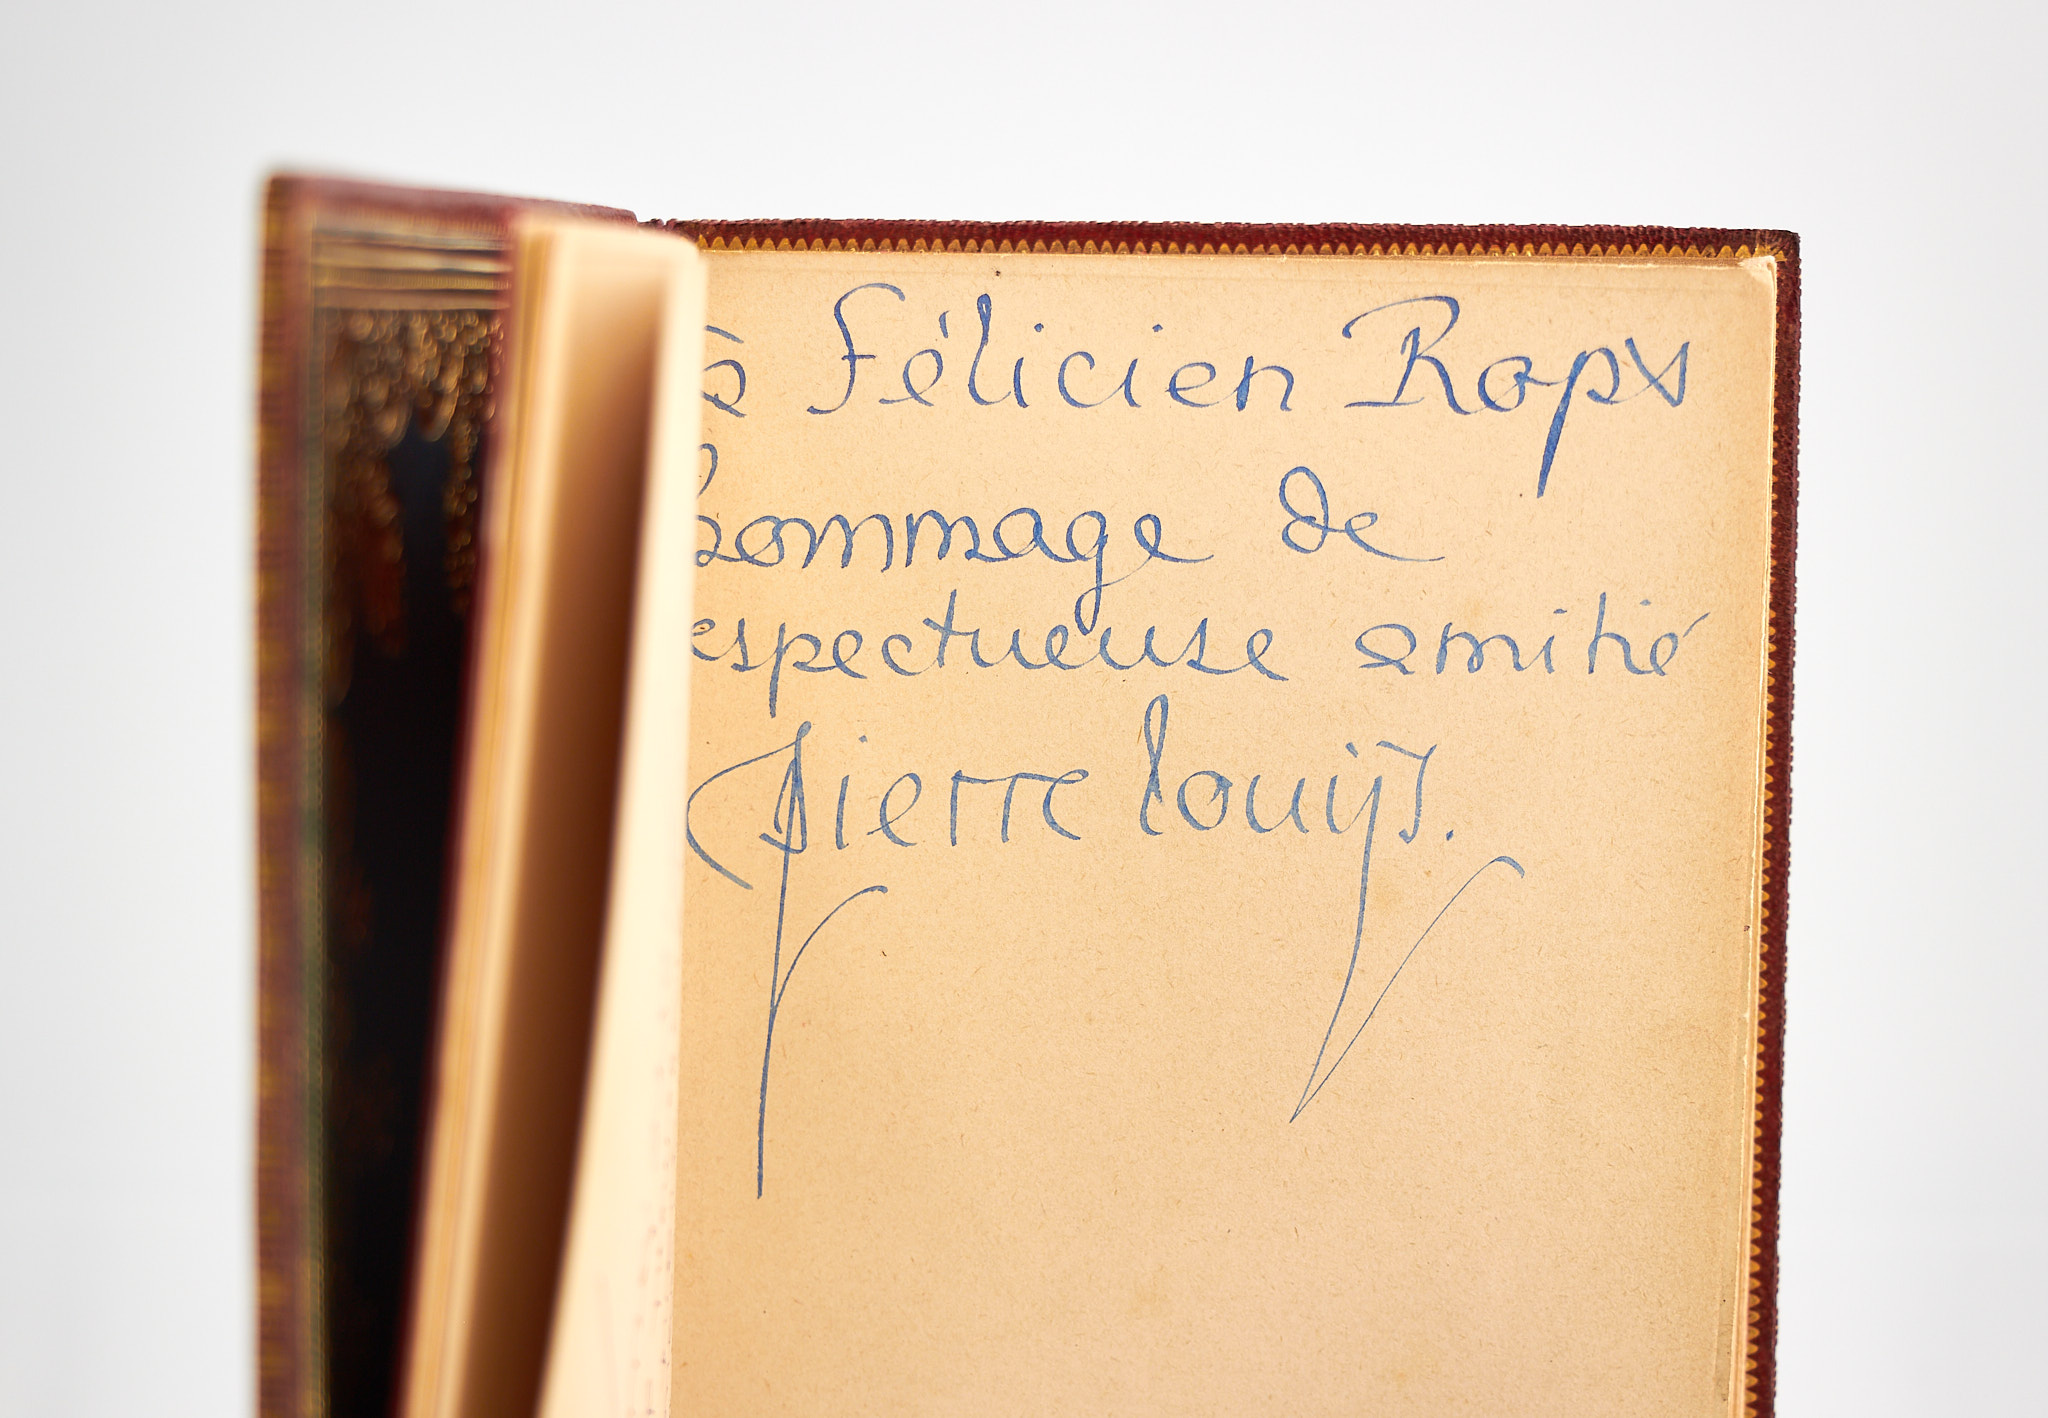 à Félicien Rops
hommage de
respectueuse amitié
Pierre Louÿs.